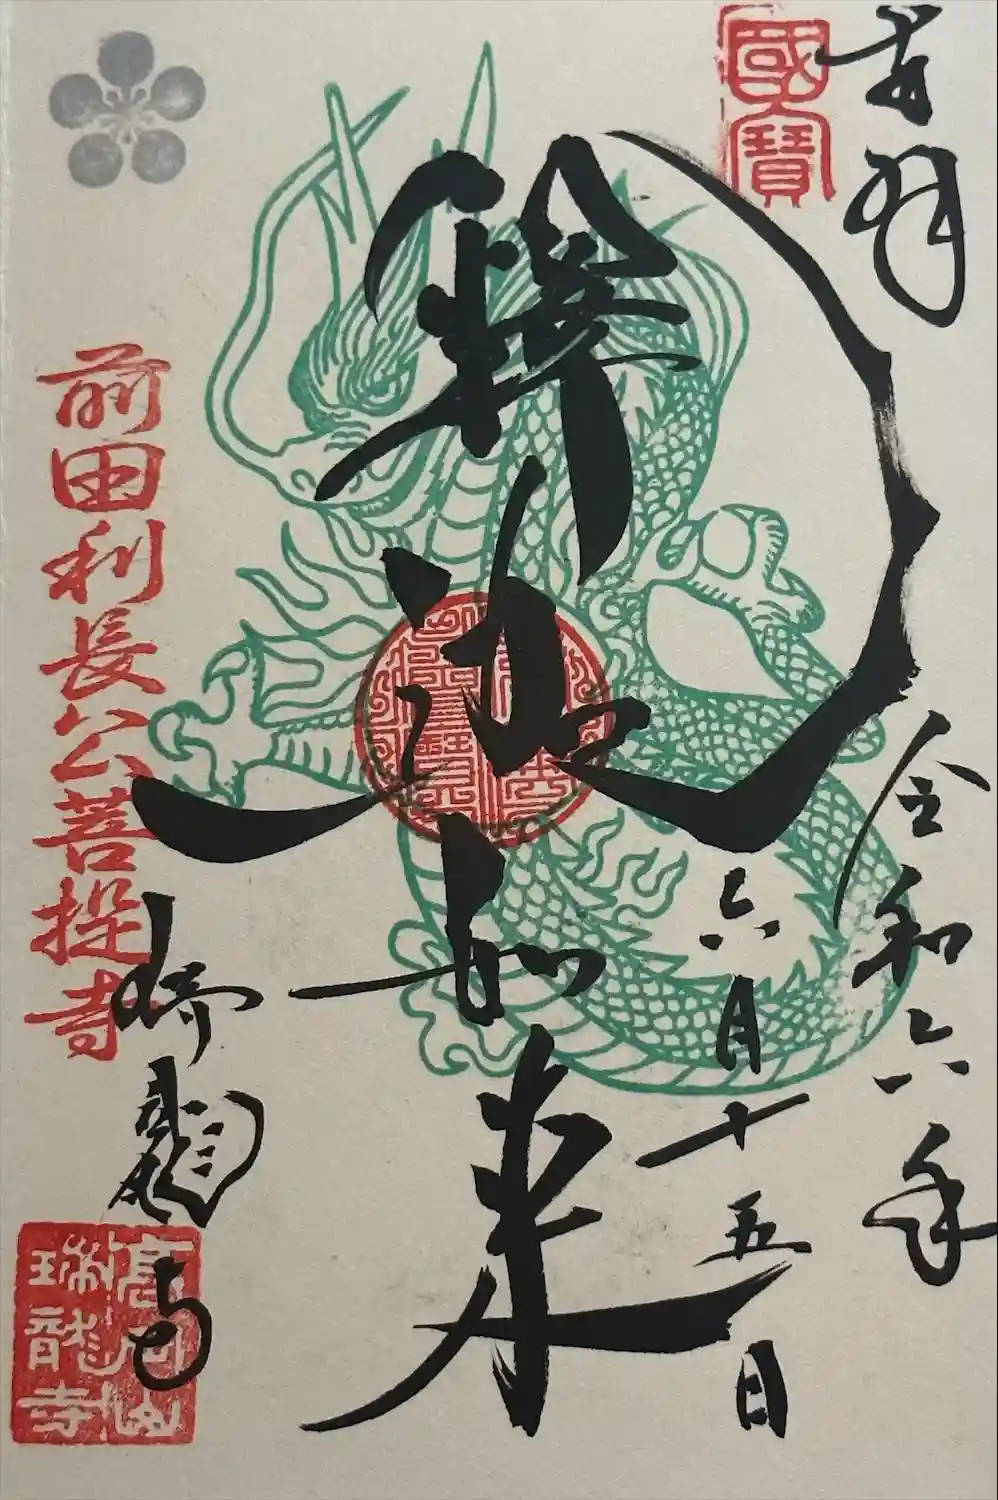 奉拝
國寶
令和六年
六月十五日
釋迦如来
前田利長公菩提寺
瑞龍寺
高岡山
瑞龍寺